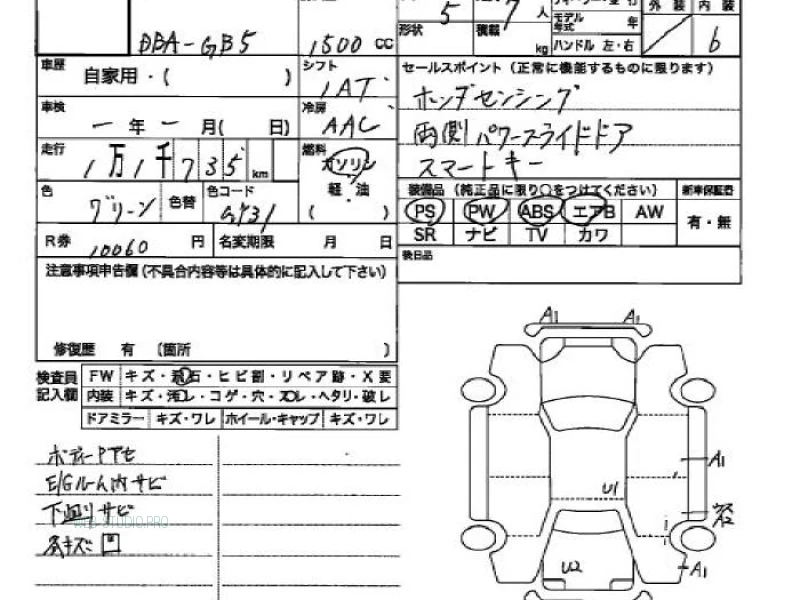 5
7人
形状
積載
kg
モデル年式
年
ハンドル 左・右
外装
内装
6
DBA-GB5
1500 cc
車歴
自家用・( )
シフト
IAT
車検
一年一月( 日)
冷房
AAC
走行
1万1千735km
燃料
ガソリン
軽・油
( )
色
グリーン
色替
色コード
R券
10060円
名変期限 月 日
セールスポイント(正常に機能するものに限ります)
ホンダセンシング
両側パワースライドドア
スマートキー
装備品(純正品に限り○をつけてください)
新車保証書
PS PW ABS エアB AW
有・無
SR ナビ TV カワ
後日品
注意事項申告欄(不具合内容等は具体的に記入して下さい)
修復歴 有 〔箇所 〕
検査員記入欄
FW キズ・飛石・ヒビ割・リペア跡・X要
内装 キズ・汚レ・コゲ・穴・スレ・ヘタリ・破レ
ドアミラー キズ・ワレ ホイール・キャップ キズ・ワレ
E/Gルーム内サビ
下回りサビ
WEB-STUDIO.PRO
A1
A1
A1
U1
U2
A1